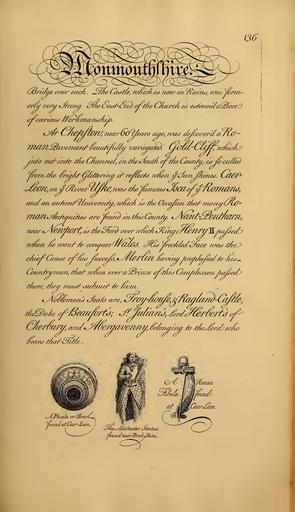 136
Monmouthshire.
Bridge over each. The Castle, which is now in Ruins, was form-
erly very Strong. The East End of the Church is esteem'd a Piece
of curious Workmanship.
At Chepstow, near 60 Years ago, was discover'd a Ro-
man Pavement beautifully variegated. Gold-Cliff, which
juts out into the Channel, in the South of the County, is so called
from the bright Glittering it reflects when ye Sun shines. Caer-
Leon, on ye River Uske, was the famous Isca of ye Romans,
and an antient University, which is the Occasion that many Ro-
man Antiquities are found in this County. Nant-Pentkarn,
near Newport, is the Ford over which King Henry II. passed
when he went to conquer Wales. His freckled Face was the
chief Cause of his success, Merlin having prophesied to his
Countrymen, that when ever a Prince of this Complexion passed
there, they must submit to him.
Noblemen's Seats are, Troy-house, & Ragland-Castle,
the Duke of Beaufort's; St. Julian's, Lord Herbert's of
Cherbury, and Abergavenny belonging to the Lord who
bears that Title.
A Phiala or Bowl
found at Caer-Leon.
The Alabaster Statue
found near Porch Shini.
A Roman
Fibula found
at Caer-Leon